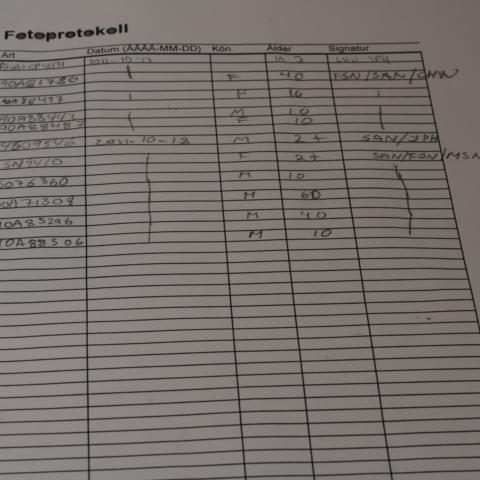 Fotoprotokoll
Art Datum (ÅÅÅÅ-MM-DD) Kön Ålder Signatur
90A81780 F 40 FSN/SAN/CHW
F 10
90A88443 M 10
90A88487 F 10
4609546 2011-10-18 M 2+ SAN/JPH
SN9410 F 2+ SAN/FSN/MSN
6076360 M 10
0A71308 M 60
0A85296 M 40
0A88506 M 10